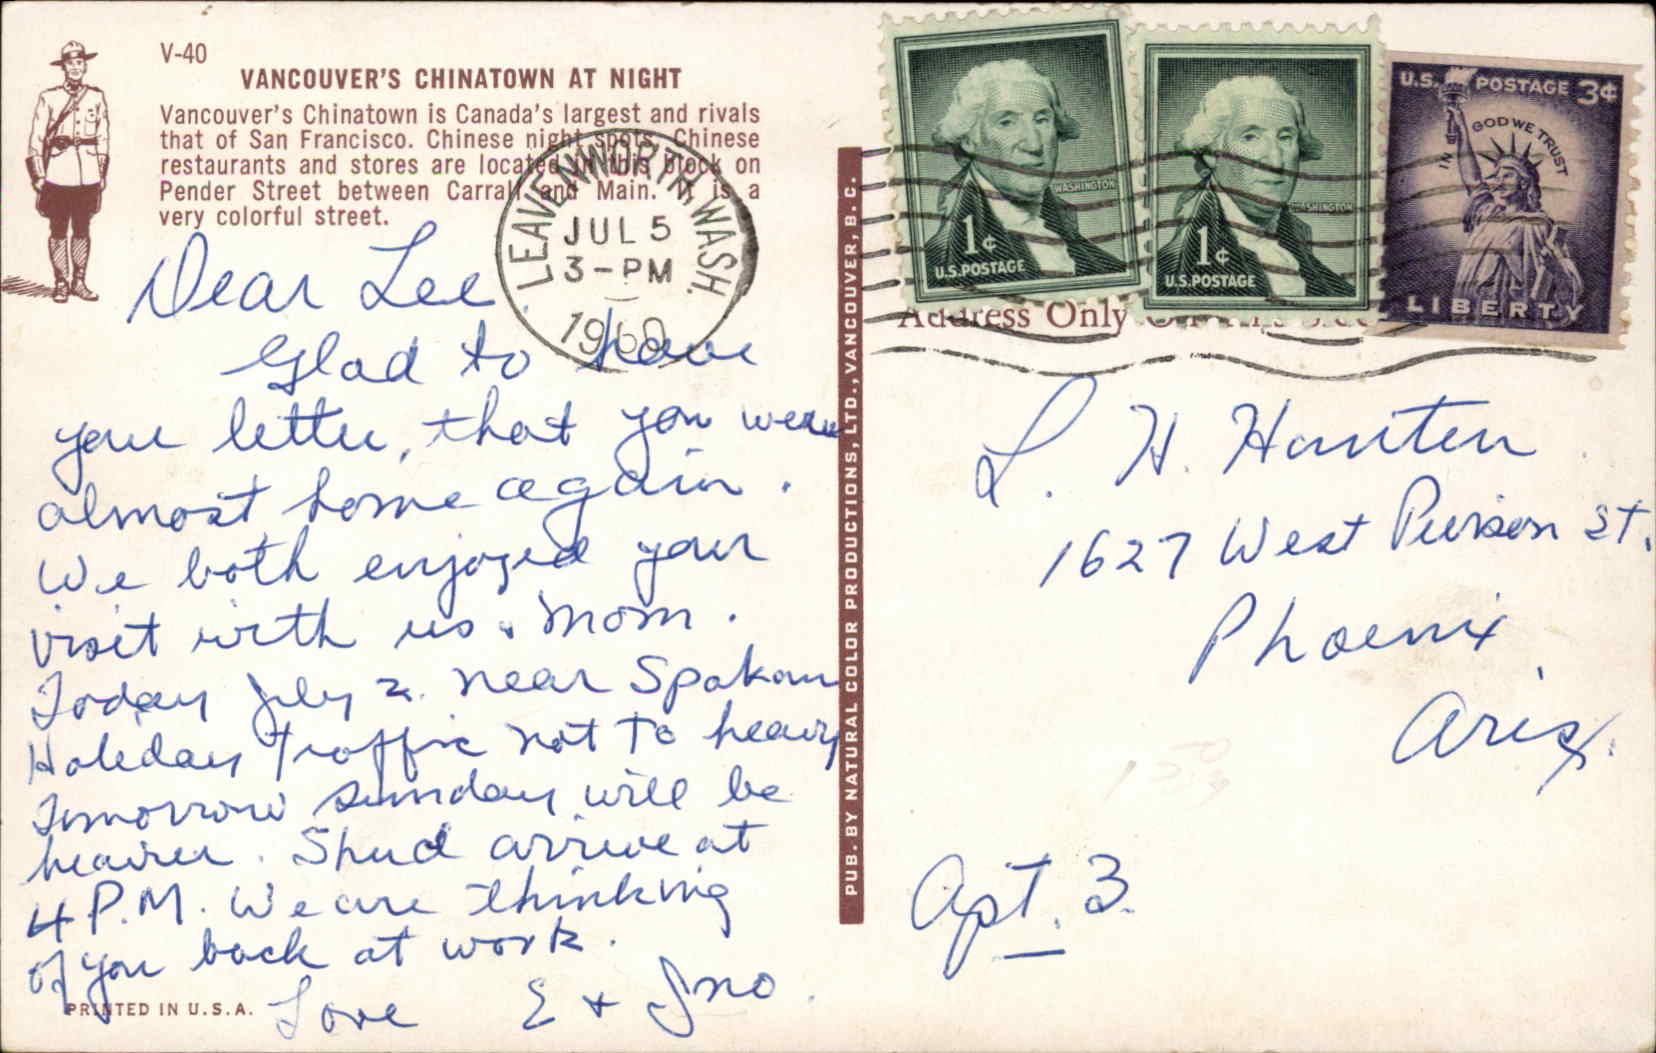 V-40
VANCOUVER'S CHINATOWN AT NIGHT
Vancouver's Chinatown is Canada's largest and rivals
that of San Francisco. Chinese night spots, Chinese
restaurants and stores are located in this block on
Pender Street between Carrall and Main. It is a
very colorful street.
LEAVENWORTH, WASH.
JUL 5
3-PM
1960
Dear Lee
Glad to have
your letter, that you were
almost home again.
We both enjoyed your
visit with us. Mom.
Today July 2. near Spokan
Holiday Traffic not to heavy
Tomorrow Sunday will be
heavier. Shud arrive at
4 P.M. We are thinking
of you back at work.
Love E + Jno.
PRINTED IN U.S.A.
PUB. BY NATURAL COLOR PRODUCTIONS, LTD., VANCOUVER, B.C.
WASHINGTON
1¢
U.S. POSTAGE
WASHINGTON
1¢
U.S. POSTAGE
U.S. POSTAGE 3¢
IN GOD WE TRUST
LIBERTY
Address Only
L. H.
1627 West Pierson St.
Phoenix,
Ariz.
Apt. 3.